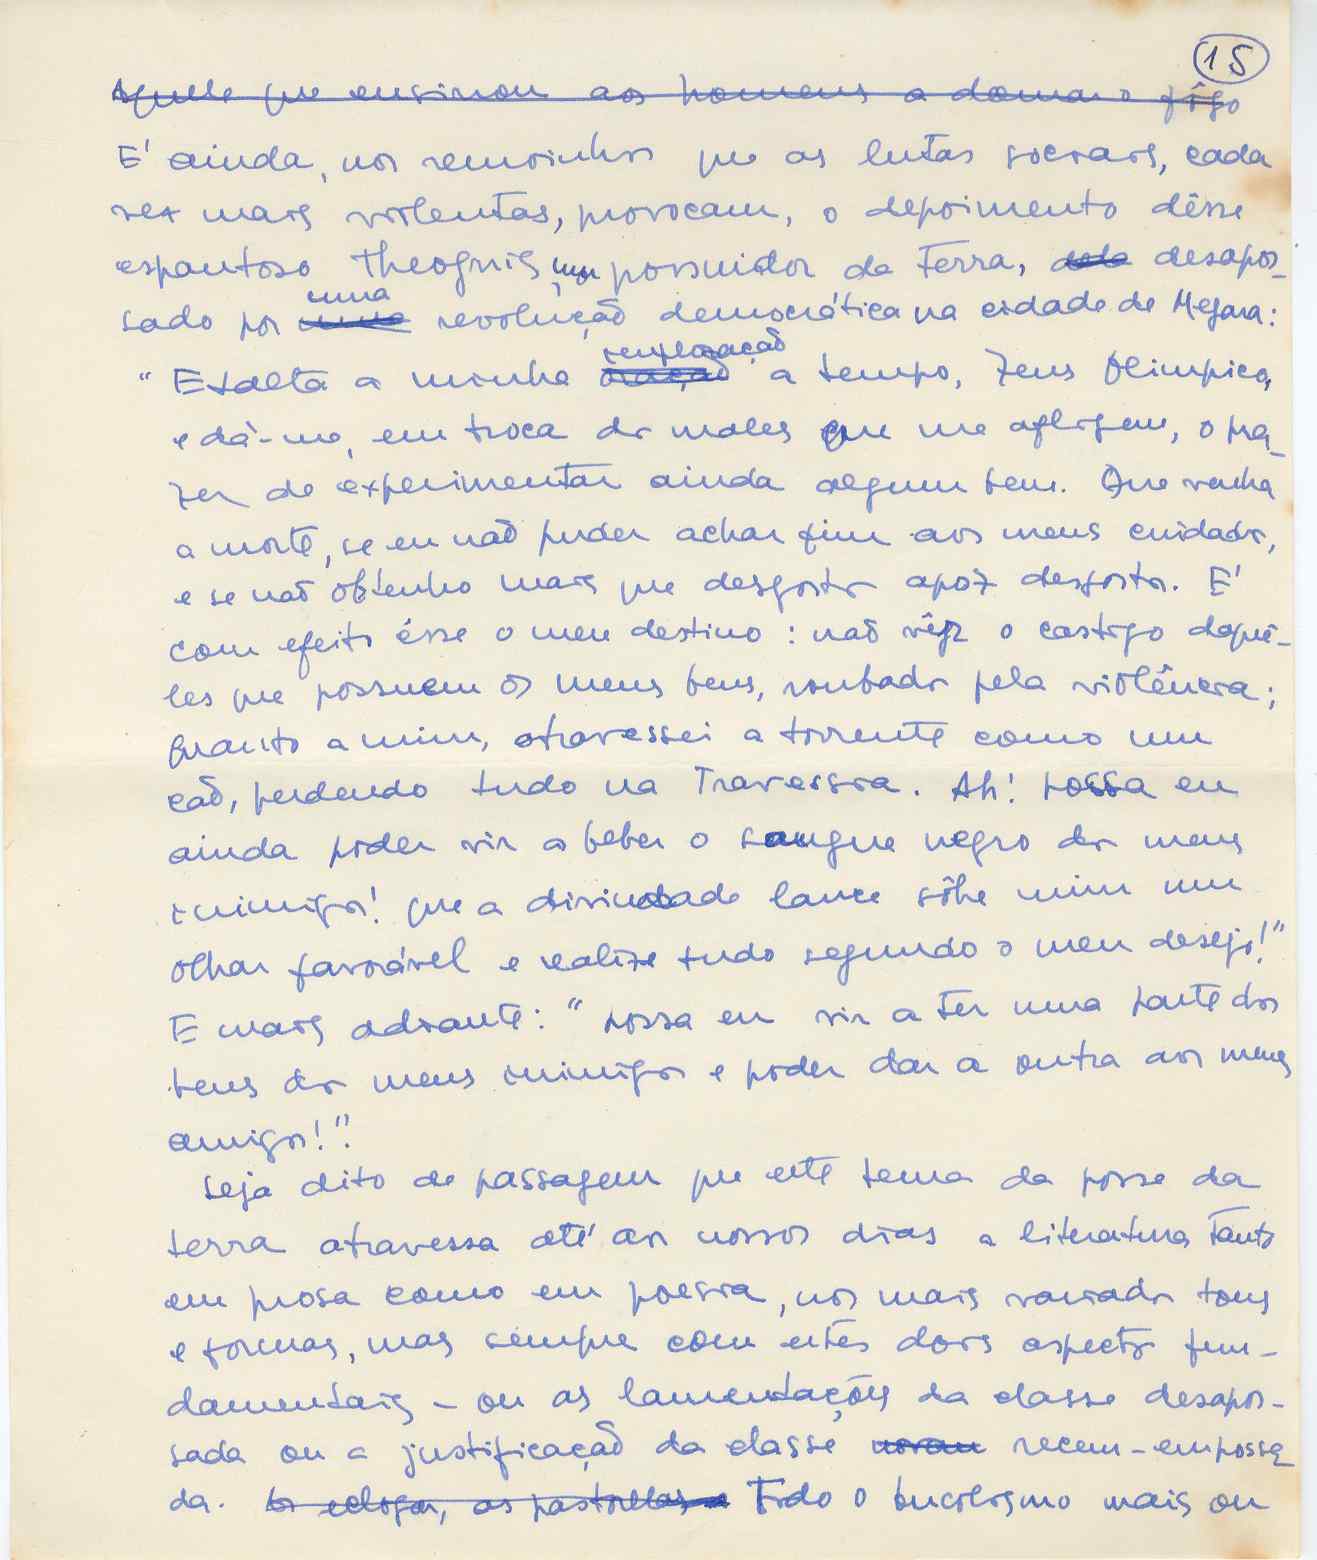 15
Aquele que ensinou aos homens a domar o fôgo
E' ainda, nos remoinhos que as lutas sociais, cada
vez mais violentas, provocam, o depoimento dêsse
espantoso Theognis, um possuidor da terra, desapos-
sado por uma revolução democrática na cidade de Megara:
"Exalta a minha a tempo, Zeus Olimpico,
e dá-me, em troca dos males que me afligem, o pra-
zer de experimentar ainda algum bem. Que venha
a morte, se eu não puder achar fim aos meus cuidados,
e se não obtenho mais que desgostos apoz desgostos. E'
com efeito ésse o meu destino: não vêjo o castigo daquê-
les que possuem os meus bens, roubados pela violência;
quanto a mim, atravessei a torrente como um
cão, perdendo tudo na travessia. Ah! possa eu
ainda poder vir a beber o sangue negro dos meus
inimigos! que a divindade lance sôbre mim um
olhar favorável e realize tudo segundo o meu desejo!"
E mais adiante: "possa eu vir a ter uma parte dos
bens dos meus inimigos e poder dar a outra aos meus
amigos!".
Seja dito de passagem que este tema da posse da
terra atravessa até aos nossos dias a literatura tanto
em prosa como em poesia, nos mais variados tons
e formas, mas sempre com estes dois aspectos fun-
damentais - ou as lamentações da classe desapos-
sada ou a justificação da classe recem-empossa
da. as eclogas, as pastorelas Todo o bucolismo mais ou